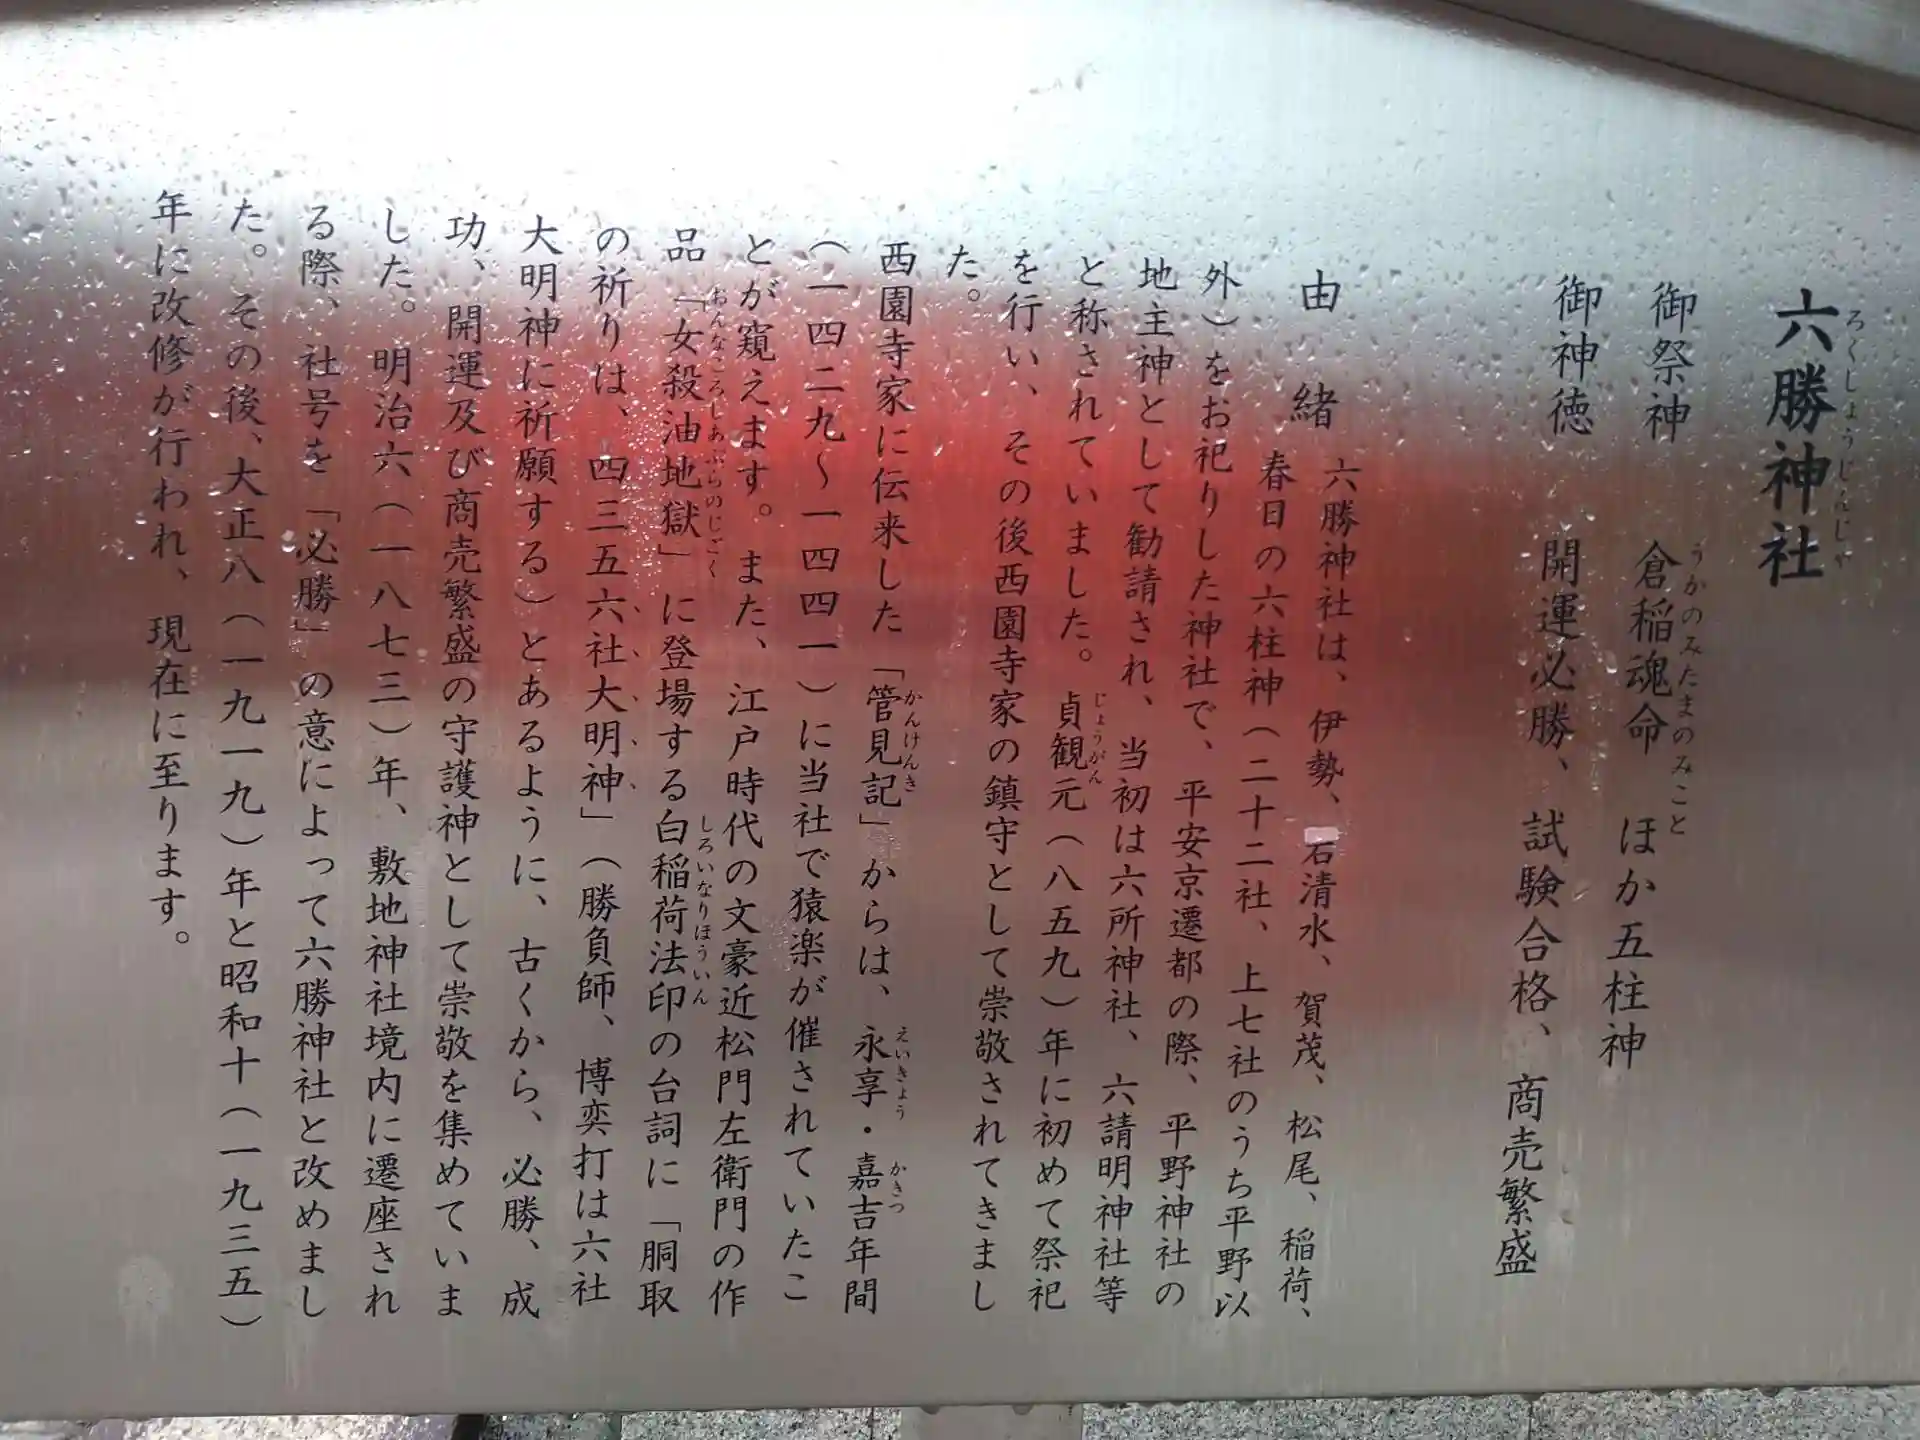 六勝神社
ろくしょうじんじゃ
御祭神　倉稲魂命　ほか五柱神
うかのみたまのみこと
御神徳　開運必勝、試験合格、商売繁盛
由　緒　六勝神社は、伊勢、石清水、賀茂、松尾、稲荷、
春日の六柱神（二十二社、上七社のうち平野以
外）をお祀りした神社で、平安京遷都の際、平野神社の
地主神として勧請され、当初は六所神社、六請明神社等
と称されていました。貞観元（八五九）年に初めて祭祀
じょうがん
を行い、その後西園寺家の鎮守として崇敬されてきまし
た。
西園寺家に伝来した「管見記」からは、永享・嘉吉年間
かんけんき　えいきょう　かきつ
（一四二九～一四四一）に当社で猿楽が催されていたこ
とが窺えます。また、江戸時代の文豪近松門左衛門の作
品「女殺油地獄」に登場する白稲荷法印の台詞に「胴取
おんなころしあぶらのじごく　しろいなりほういん
の祈りは、四三五六社大明神」（勝負師、博奕打は六社
大明神に祈願する）とあるように、古くから、必勝、成
功、開運及び商売繁盛の守護神として崇敬を集めていま
した。明治六（一八七三）年、敷地神社境内に遷座され
る際、社号を「必勝」の意によって六勝神社と改めまし
た。その後、大正八（一九一九）年と昭和十（一九三五）
年に改修が行われ、現在に至ります。